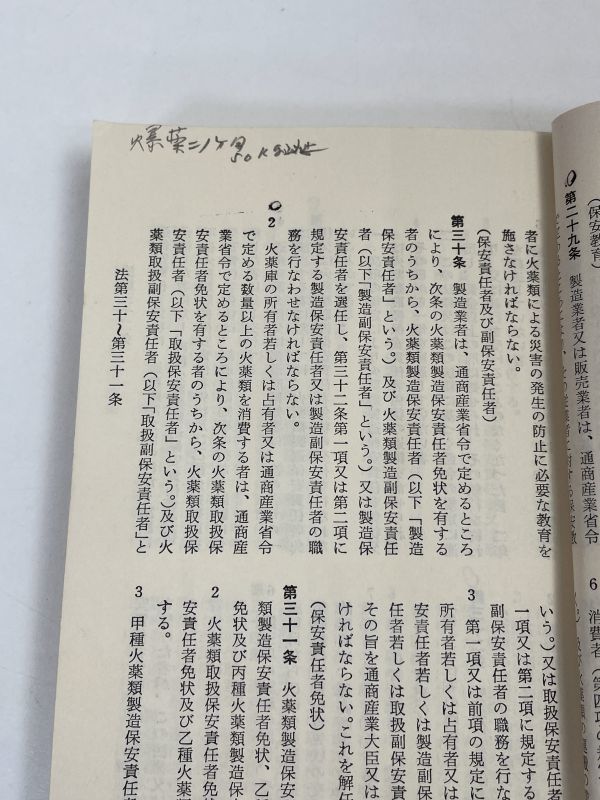 爆薬二ヶ月
50kg以上
(保安教育)
第二十九条 製造業者又は販売業者は、通商産業省令
者に火薬類による災害の発生の防止に必要な教育を
施さなければならない。
(保安責任者及び副保安責任者)
第三十条 製造業者は、通商産業省令で定めるところ
により、次条の火薬類製造保安責任者免状を有する
者のうちから、火薬類製造保安責任者(以下「製造
保安責任者」という。)及び火薬類製造副保安責任
者(以下「製造副保安責任者」という。)又は製造保
安責任者を選任し、第三十二条第一項又は第二項に
規定する製造保安責任者又は製造副保安責任者の職
務を行なわせなければならない。
2 火薬庫の所有者若しくは占有者又は通商産業省令
で定める数量以上の火薬類を消費する者は、通商産
業省令で定めるところにより、次条の火薬類取扱保
安責任者免状を有する者のうちから、火薬類取扱保
安責任者(以下「取扱保安責任者」という。)及び火
薬類取扱副保安責任者(以下「取扱副保安責任者」と
法第三十~第三十一条
6 消費者(第四項の
いう。)又は取扱保安責任
一項又は第二項に規定する
副保安責任者の職務を行な
3 第一項又は前項の規定に
所有者若しくは占有者又は
安責任者若しくは製造副保
任者若しくは取扱副保安責
その旨を通商産業大臣又は
ければならない。これを解任
(保安責任者免状)
第三十一条 火薬類製造保安
類製造保安責任者免状、乙種
免状及び丙種火薬類製造保
2 火薬類取扱保安責任者免
安責任者免状及び乙種火薬
する。
3 甲種火薬類製造保安責任者